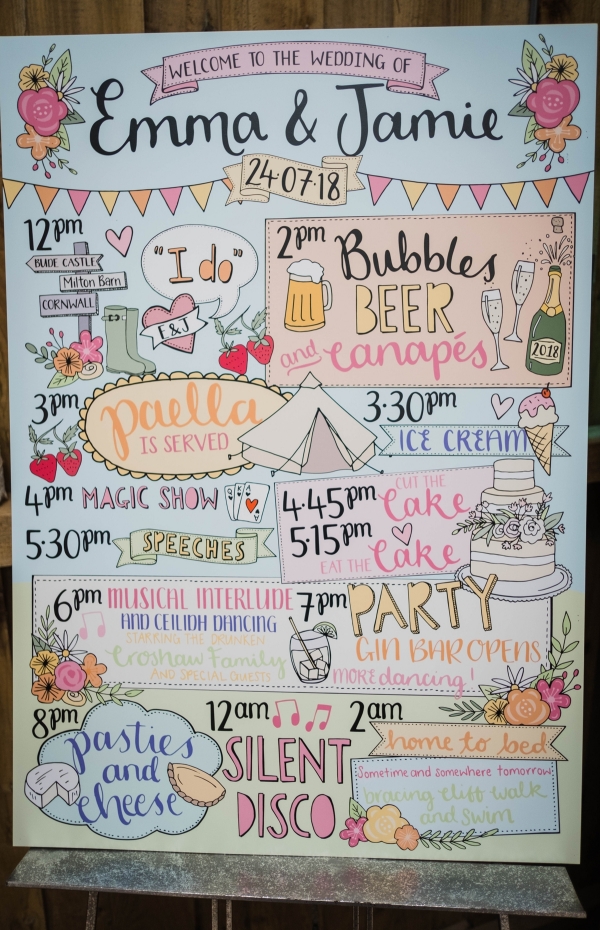 WELCOME TO THE WEDDING OF
Emma & Jamie
24·07·18
12pm
BUDE CASTLE
Milton Barn
CORNWALL
"I do"
E & J
2pm Bubbles
BEER
and canapés
2018
3pm
paella
IS SERVED
3·30pm
ICE CREAM
4pm MAGIC SHOW
Q K A
A
4·45pm CUT THE
Cake
5·15pm
EAT THE Cake
5·30pm SPEECHES
6pm MUSICAL INTERLUDE
AND CEILIDH DANCING
STARRING THE DRUNKEN
Croshaw Family
AND SPECIAL GUESTS
7pm PARTY
GIN BAR OPENS
MORE dancing!
8pm
pasties
and
cheese
12am
SILENT
DISCO
2am
home to bed
Sometime and somewhere tomorrow:
bracing cliff walk
and swim